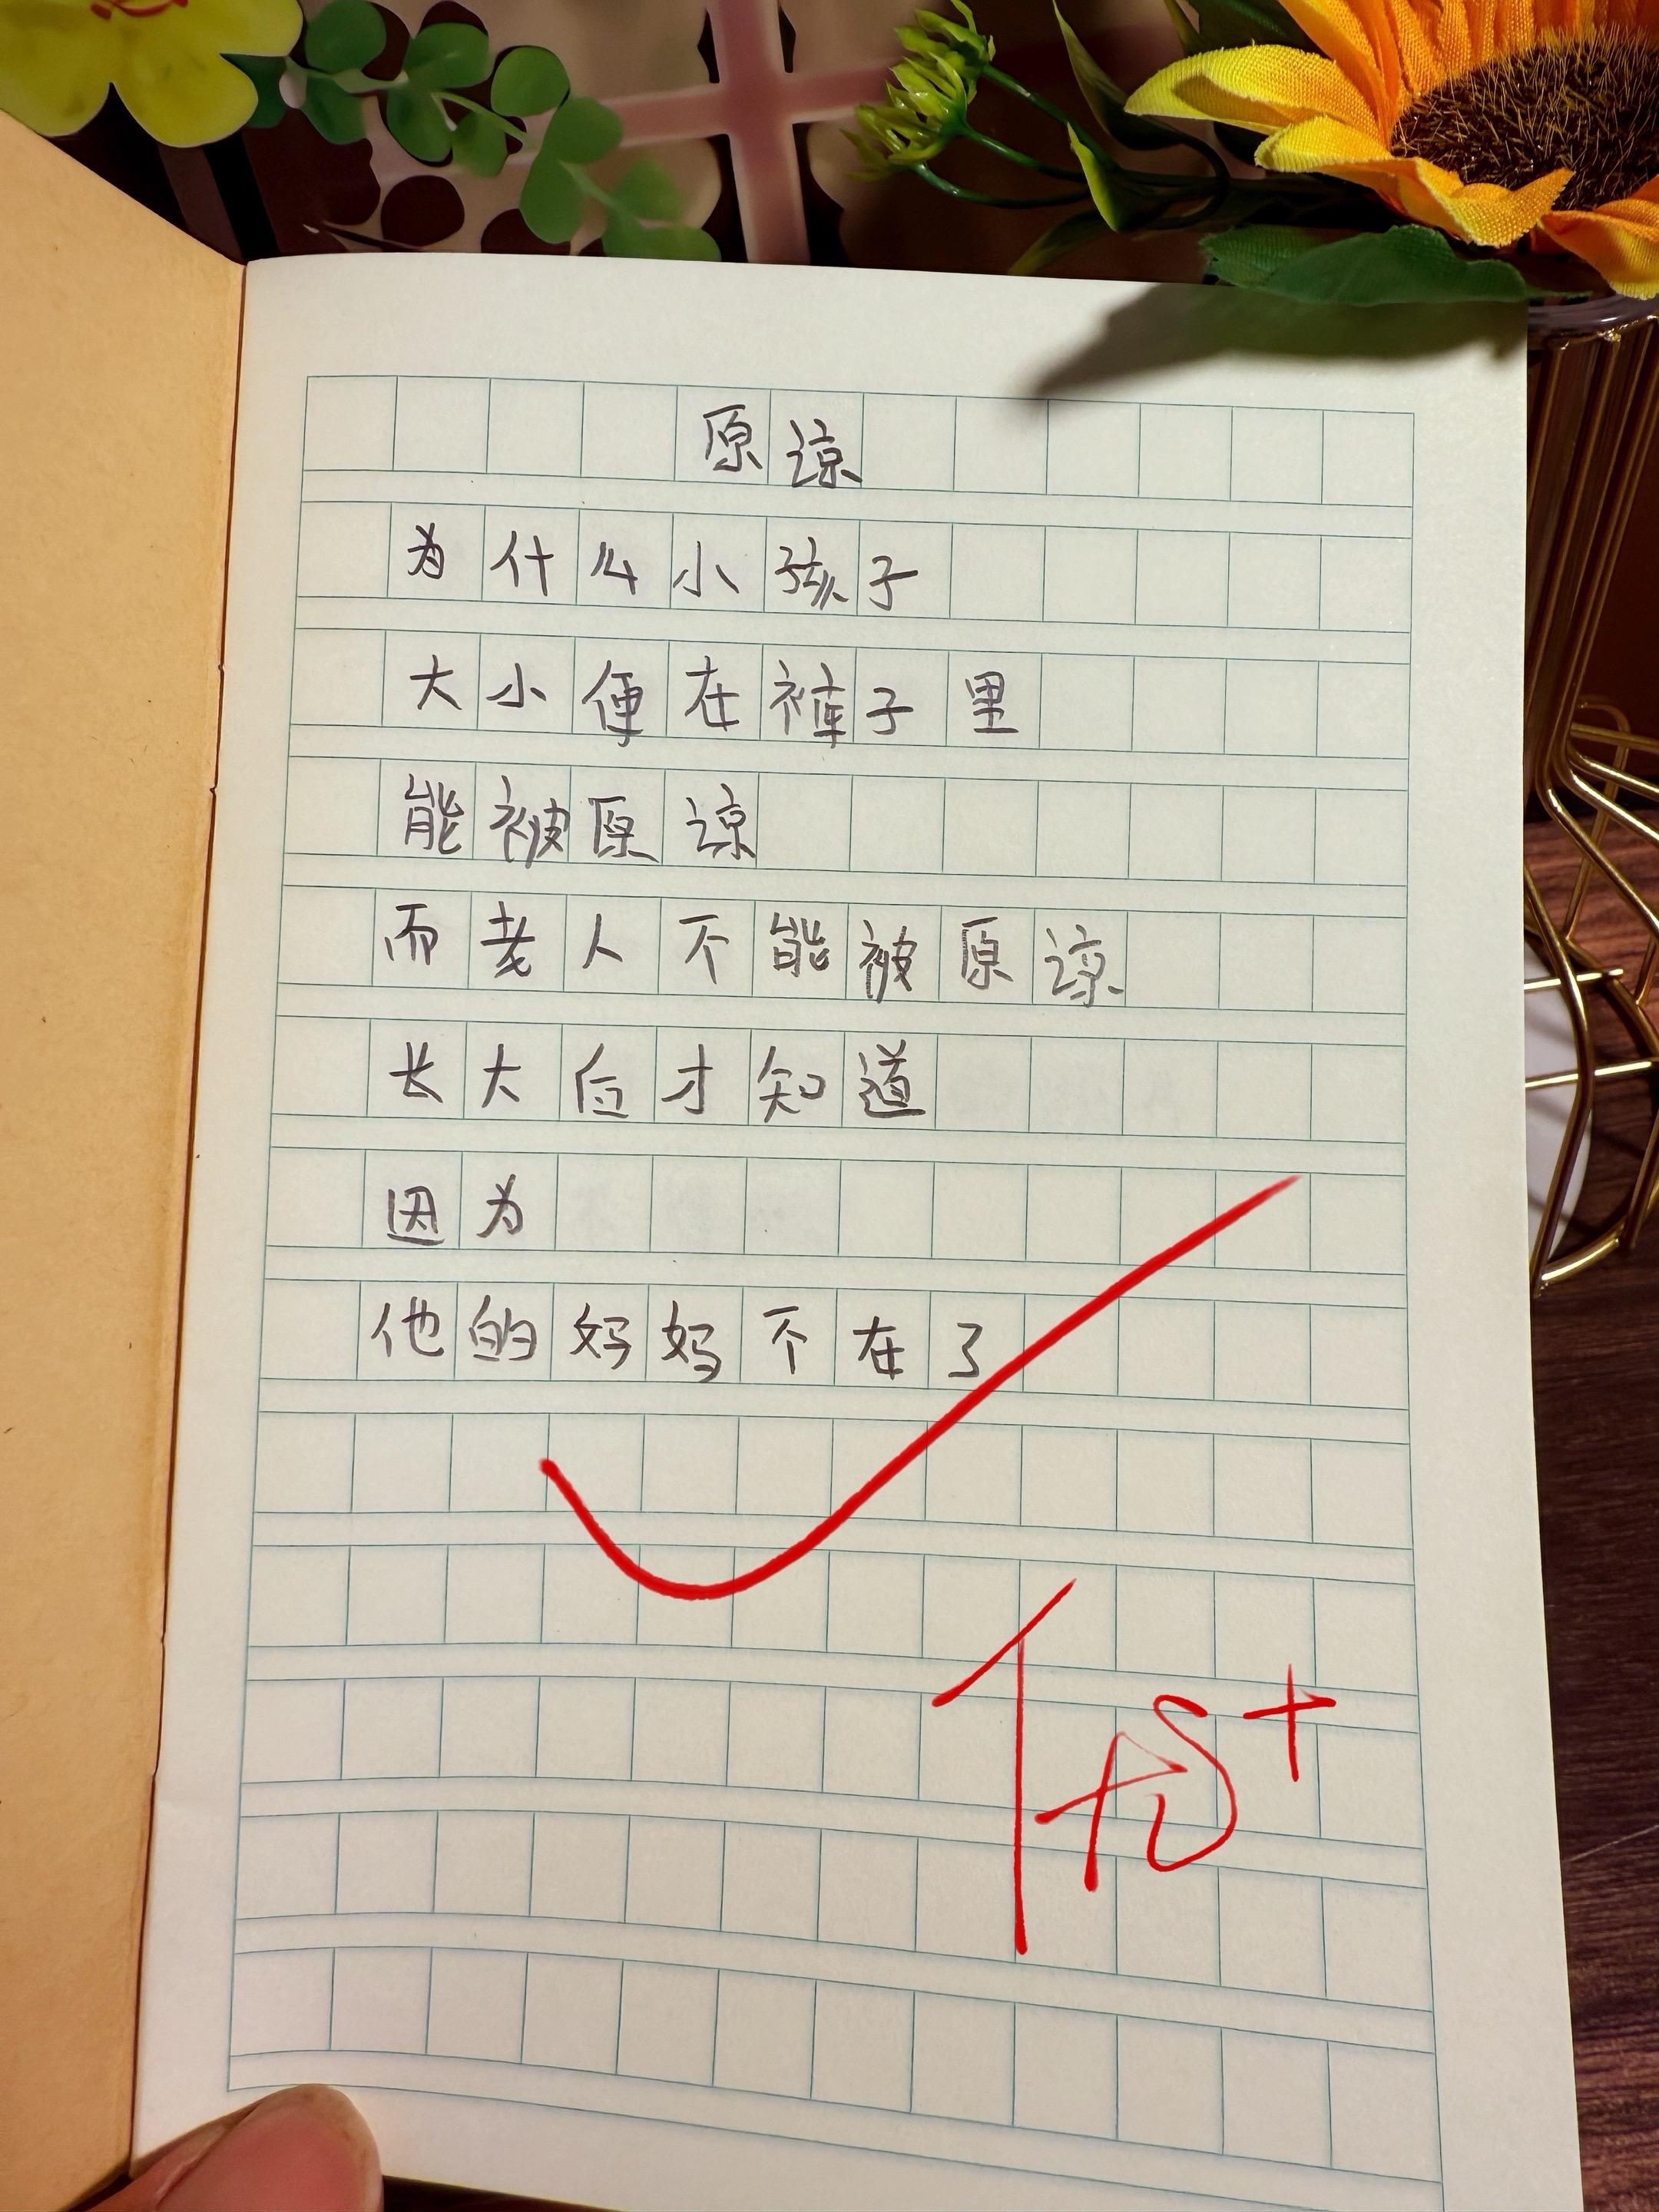 原谅
为什么小孩子
大小便在裤子里
能被原谅
而老人不能被原谅
长大后才知道
因为
他的妈妈不在了
优+